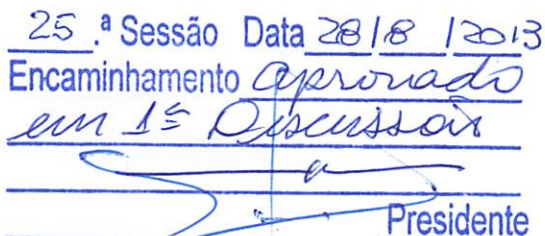 25.ª Sessão Data 28/8/2013
Encaminhamento aprovado
em 1ª Discussão
Presidente